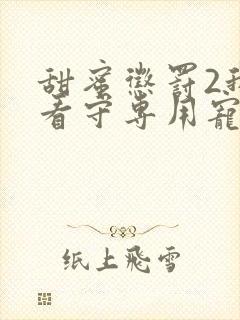 甜蜜懲罰2我
看守専用寵
纸上飛雪